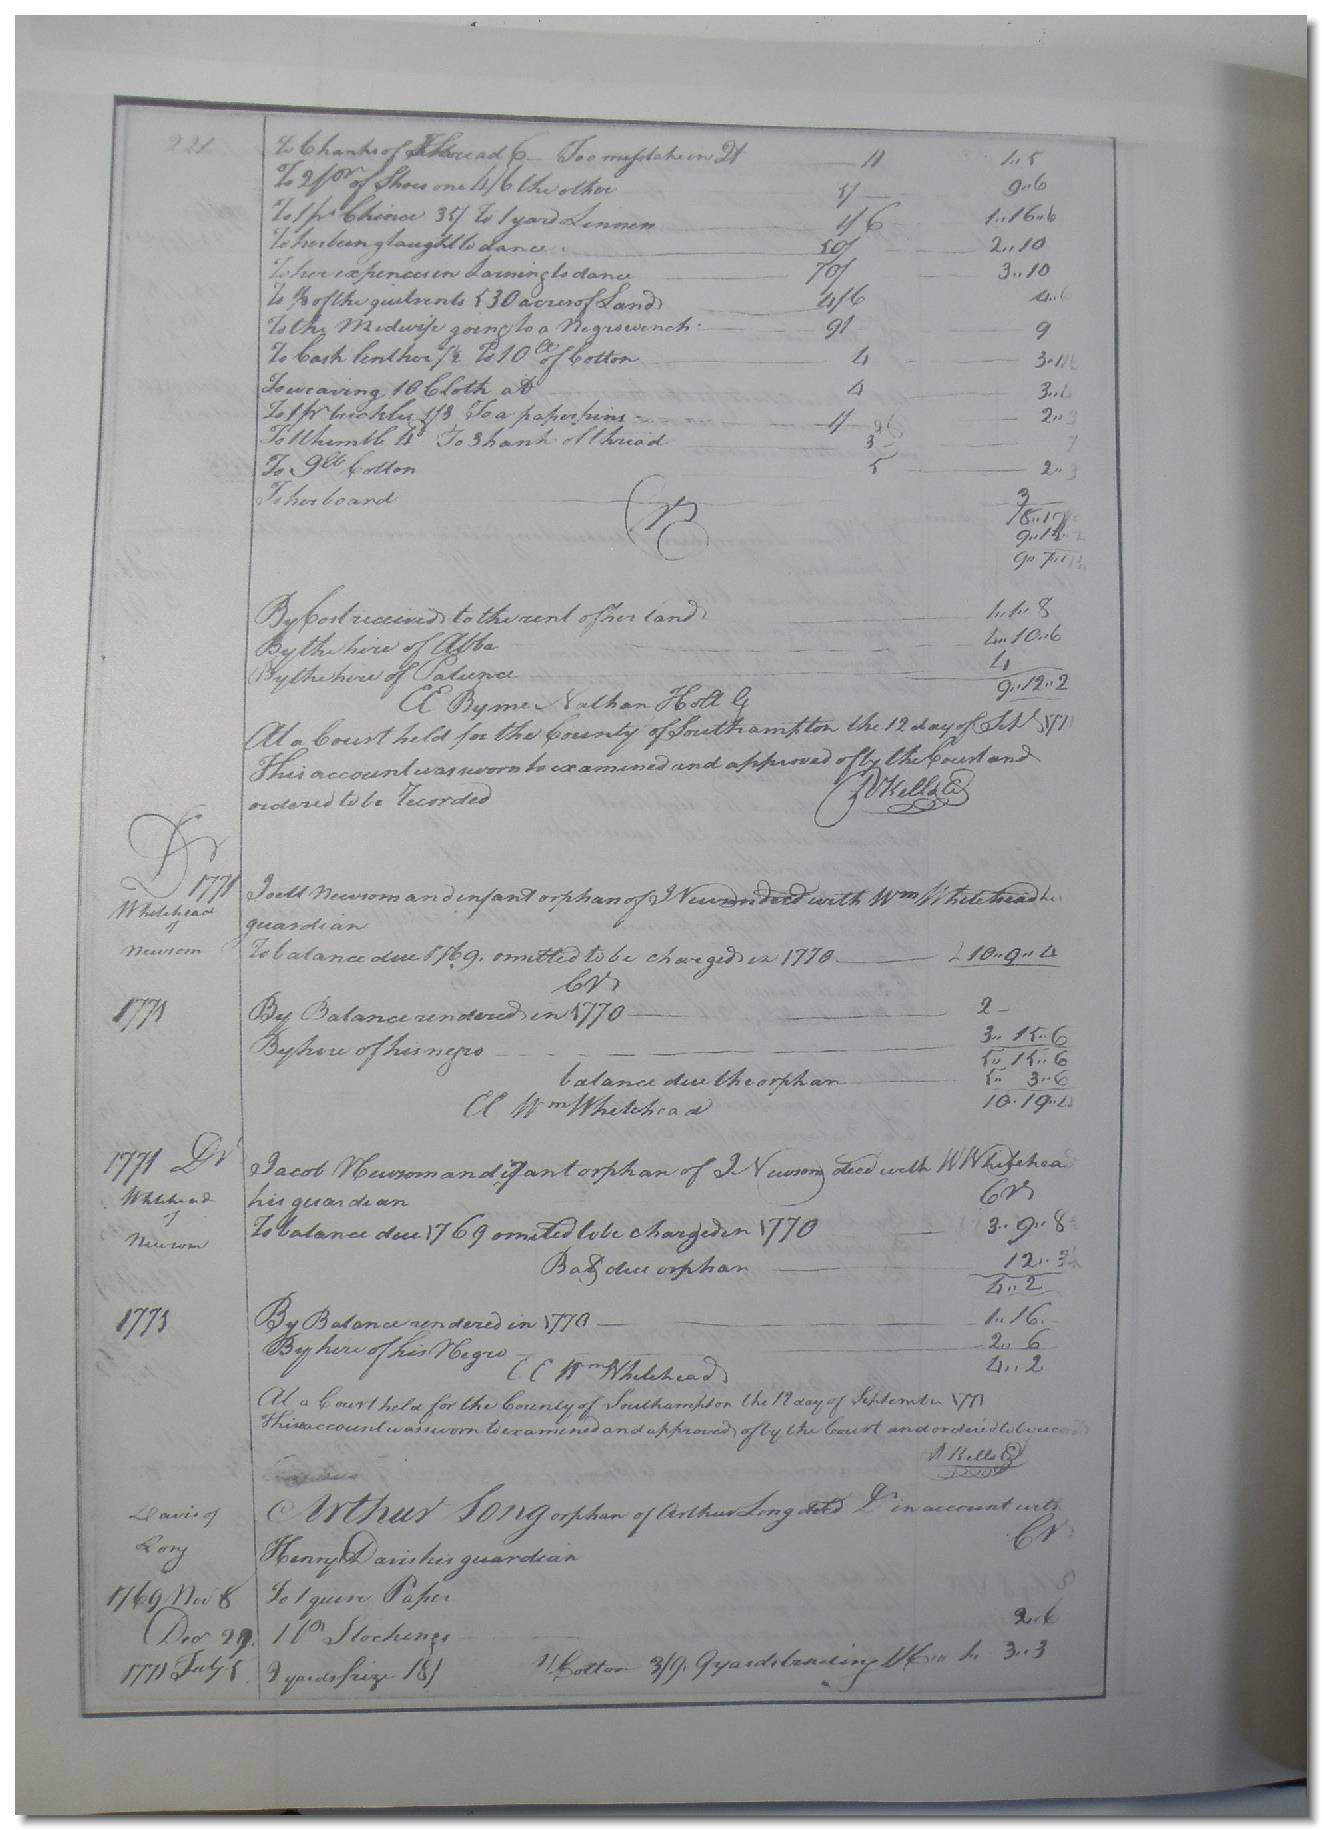 221
To 6 hanks of Thread 6 — To a mistake in 2d 11 1..5
To 2 pr of Shoes one 4/6 the other 5/ 9..6
To 1 pr Chince 35/ To 1 yard Linnen 1/6 1..16..6
To her being taught to dance 50/ 2..10
To her expences in Larning to dance 70/ 3..10
To 1/3 of the quitrents 530 acres of Land 4/6 4..6
To the Midwife going to a Negro wench 9/ 9
To Cash lent her To 10 lb of Cotton 4
To weaving 10 Cloth at 4 3..4
To 1 pr buckles 1/3 To a paper pins 1/ 2..3
To 1 thimble 4d To 3 hank of thread 3 7
To 9 lb Cotton 5 2..3
To her board 3
Cr
By Cost received to the rent of her land 1..1..8
By the hire of Abba 4..10..6
By the hire of Patience 4
9..12..2
E E By me Nathan Holt G
At a Court held for the County of Southampton the 12 day of Sept 1771
This account was sworn to examined and approved of by the Court and
ordered to be Recorded
R Kello C
Dr
1771 Joell Newsom and infant orphan of J Newsom decd with Wm Whitehead his
Whitehead of Newsom
guardian
To balance due 1769. omitted to be charged in 1770 £ 10..9..4
Cr
1771 By Balance rendered in 1770 2
By hire of his negro 3..15..6
5..15..6
balance due the orphan 5.. 3..6
E E Wm Whitehead 10.19..
1771 Dr Jacob Newsom and infant orphan of J. Newsom decd with W Whitehead
Whitehead of Newsom
his guardian Cr
To balance due 1769 omitted to be charged in 1770 3..9..8
Bal due orphan 12..
4..2
1771 By Balance rendered in 1770 1..16.
By hire of his Negro 2..6
E E Wm Whitehead 4..2
At a Court held for the County of Southampton the 12 day of September 1771
This account was sworn to examined and approved of by the Court and ordered to be recorded
R Kello C
Davis of Long
Arthur Long orphan of Arthur Long decd Dr in account with
Cr
Henry Davis his guardian
1769 Nov 8 To 1 quire Paper
Decr 29. 1 pr Stockings 2..6
1771 July 5 2 yards frize 18/ Cotton 3/9. 9 yards 3..3